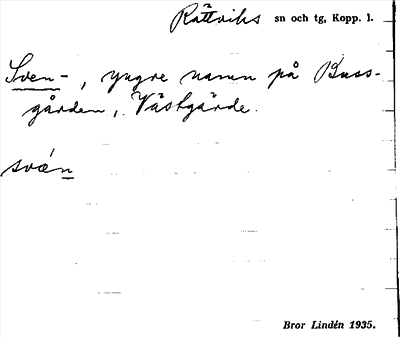 Rättviks sn och tg, Kopp. l.
Sven-, yngre namn på Buss-
gården, Västgärde.
svän
Bror Lindén 1935.